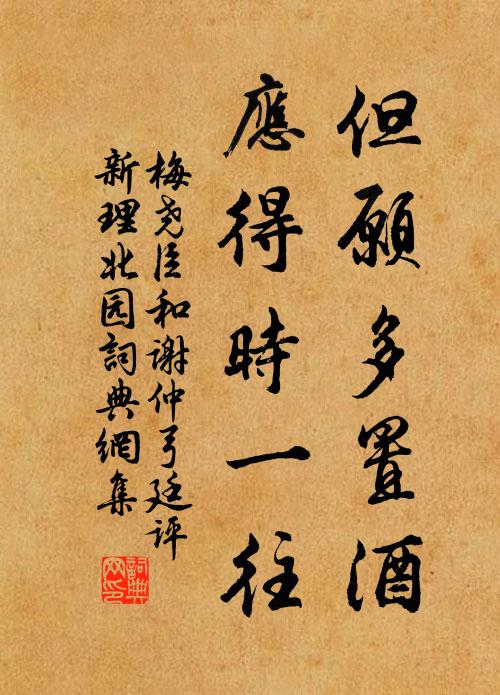 但願多置酒
應得時一往
梅尧臣和谢仲弓廷评
新理北园詞典網集
詞典
网印